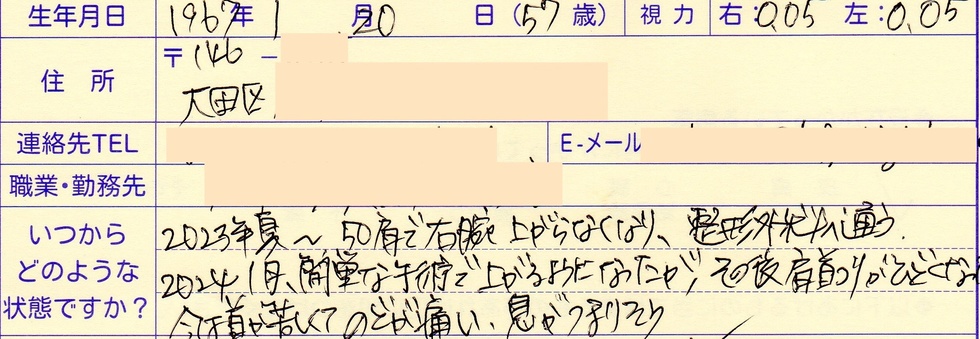 生年月日 1967年 1月 20日 (57歳) 視力 右:0.05 左:0.05
住所 〒146-
大田区
連絡先TEL E-メール
職業・勤務先
いつから 2023年夏〜50肩で右腕上がらなくなり、整形外科へ通う.
どのような 2024 1月、簡単な手術で上がるようになったが、その後肩首コリがひどくな
状態ですか? 今は首が苦しくてのどが痛い、息がつまりそう